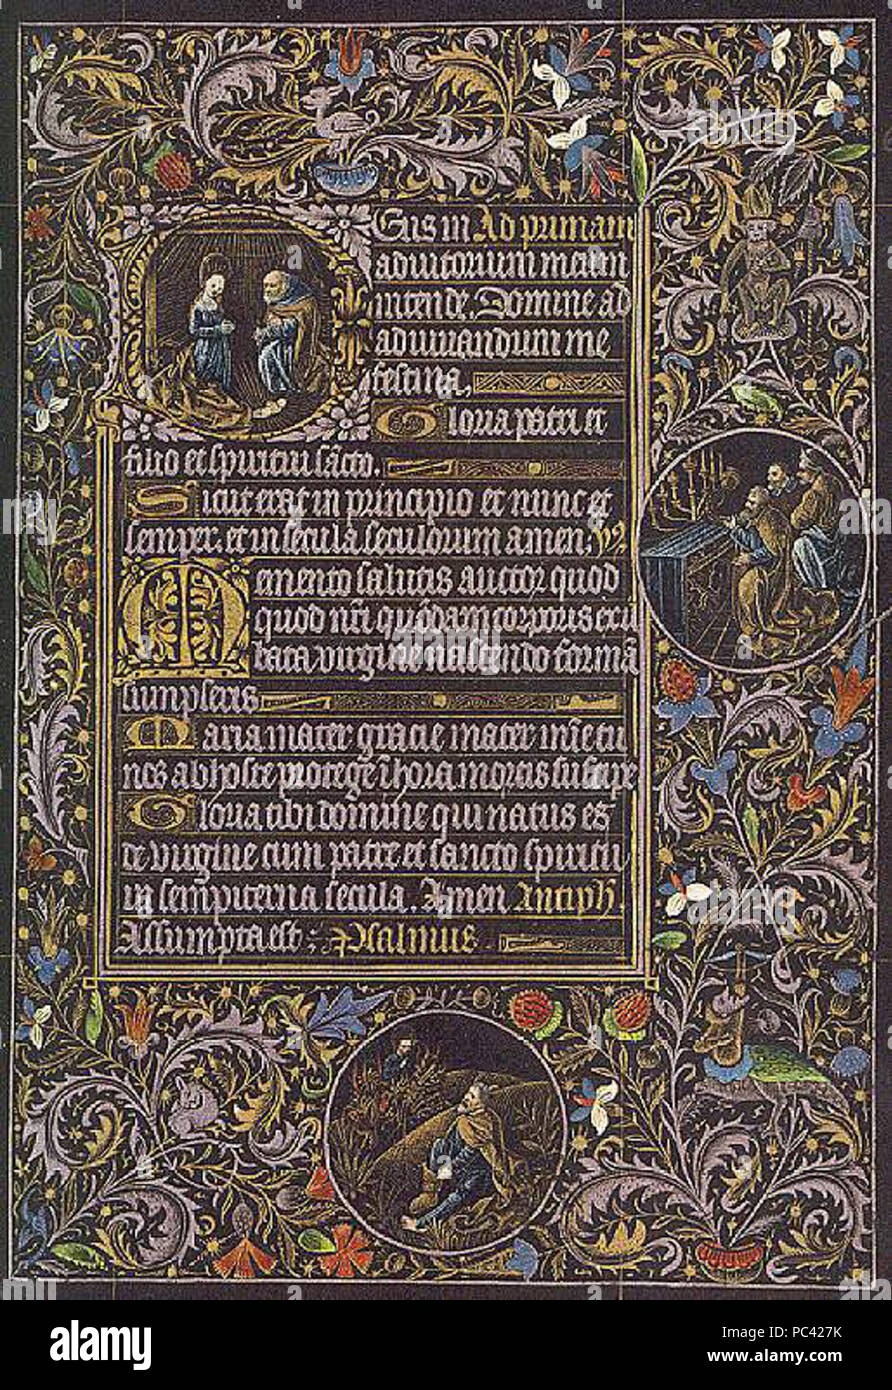 Eus in Ad primam
adiutorium meum
intende. Domine ad
adiuuandum me
festina.
Gloria patri et
filio et spiritui sãcto.
Sicut erat in principio et nunc et
semper. et in secula seculorum amen.
Memento salutis auctor quod
quod nr̃i quõdam corporis ex il
bata uirgine nascendo formã
sumpseris
Maria mater gracie mater mise
nos ab hoste protege hora mortis suscipe
Gloria tibi domine qui natus es
de uirgine cum patre et sancto spiritu
in sempiterna secula. Amen Antiph.
Assumpta est. Psalmus
alamy
Image ID: PC427K
www.alamy.com